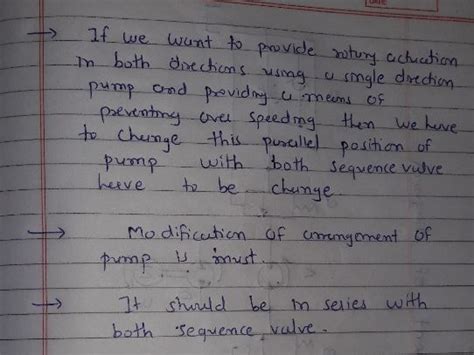 → If we want to provide rotary actuation
in both directions using a single direction
pump and providing a means of
preventing over speeding then we have
to change this parallel position of
pump with both sequence valve
heeve to be change.
→ Modification of arrangement of
pump is must.
→ It should be in series with
both sequence valve.